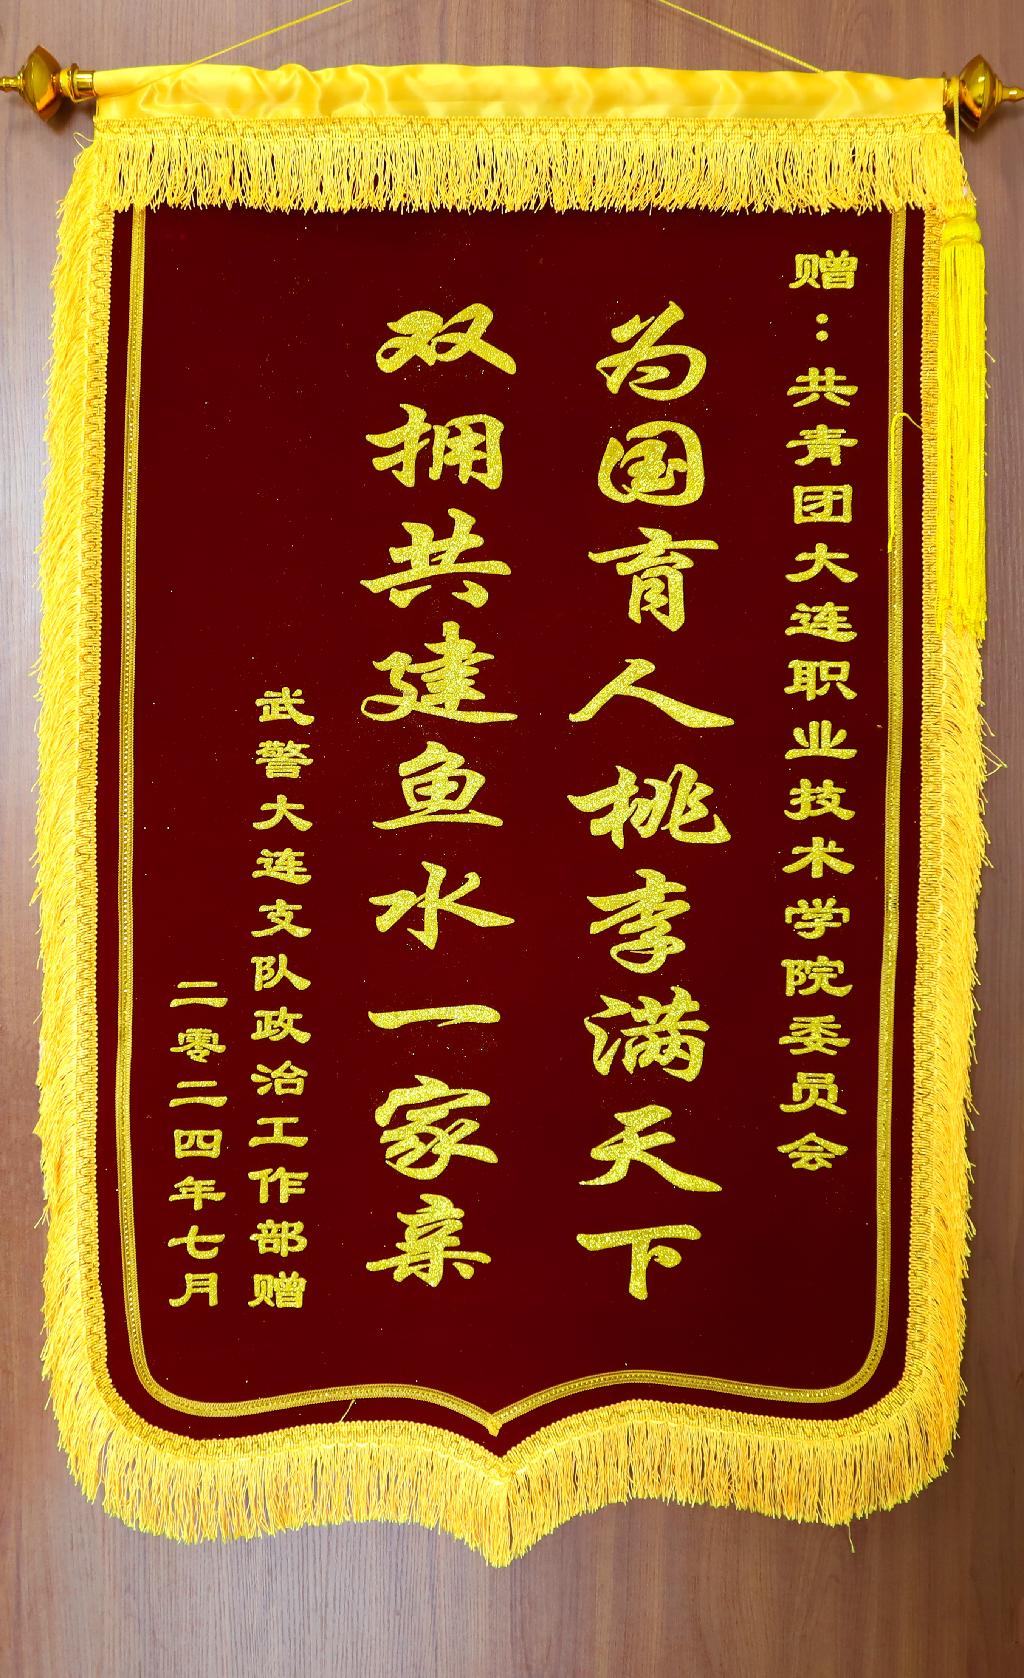 赠：共青团大连职业技术学院委员会
为国育人桃李满天下
双拥共建鱼水一家亲
武警大连支队政治工作部赠
二零二四年七月